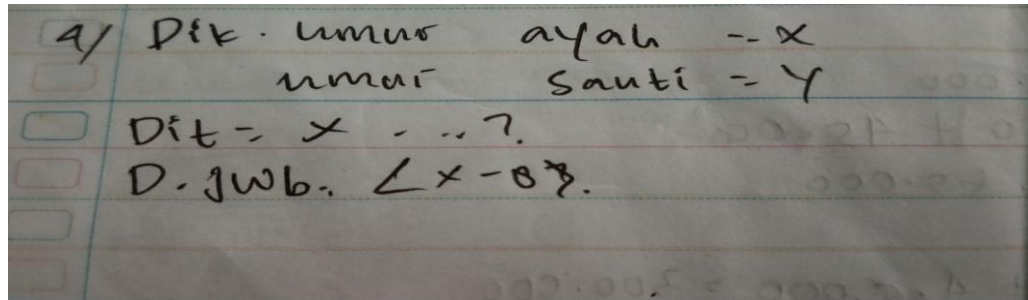 4/ Dik. umur ayah = x
umur Santi = y
Dit = x ...?
D. jwb: